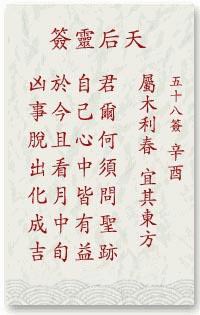 天后靈簽
五十八簽 辛酉
屬木利春 宜其東方
君爾何須問聖跡
自己心中皆有益
於今且看月中旬
凶事脫出化成吉